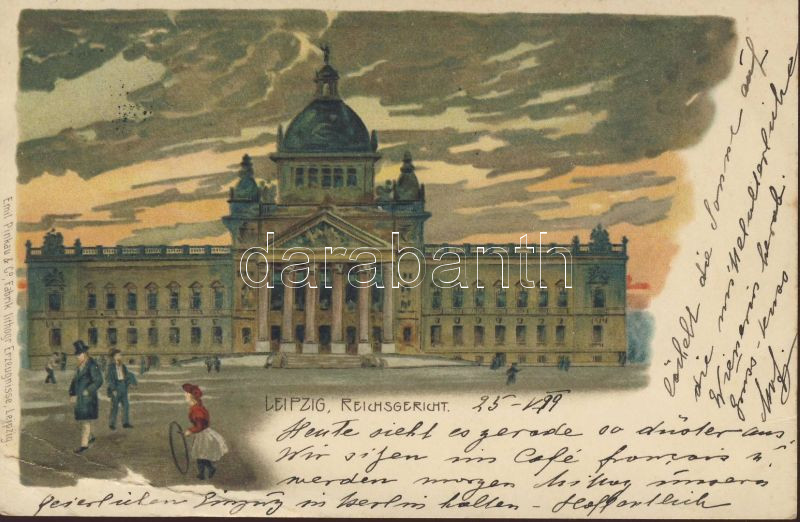 LEIPZIG, REICHSGERICHT. 25-VI 99
Heute sieht es gerade so düster aus.
Wir sitzen im Café français u.
werden morgen Mittag unsern
feierlichen Einzug in Berlin halten - Hoffentlich
lächelt die Sonne auf
die mittelalterliche
herab.
Gruss
Emil Pinkau & Co. Fabrik lithogr. Erzeugnisse, Leipzig.
darabanth